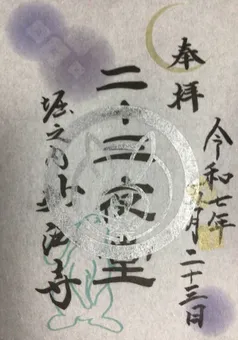 奉拝
令和七年
月二十三日
二十三夜堂
堀之内